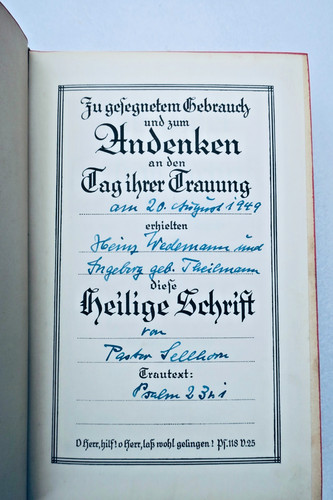 Zu gesegnetem Gebrauch
und zum
Andenken
an den
Tag ihrer Trauung
am 20. August 1949
erhielten
Heinz Wedemann und
Ingeborg geb. Theilmann
diese
Heilige Schrift
von
Pastor Sellhorn
Trautext:
Psalm 23
O Herr, hilf! o Herr, laß wohl gelingen! Ps. 118 V. 25